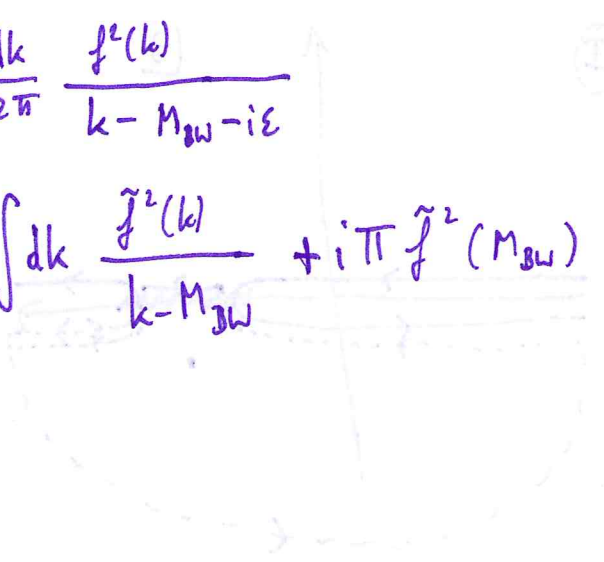 dk/2π f²(k)/(k - M_BW - iε)
∫dk f̃²(k)/(k - M_BW) + iπ f̃²(M_BW)